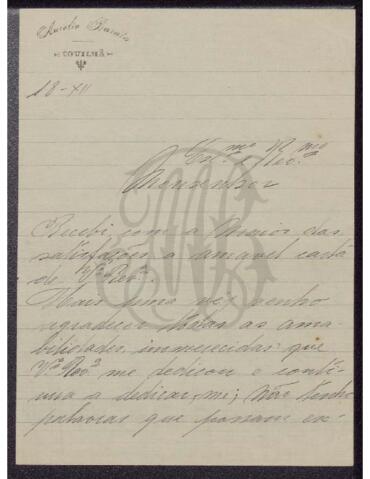 Aurelio Barata
COVILHÃ
18-XII
Ex.mo e Rev.mo
Monsenhor
Recebi com a maior das
satisfações a amavel carta
de V.a Rev.a.
Mais uma vez venho
agradecer todas as ama-
bilidades immerecidas que
V.a Rev.a me dedicou e conti-
nua a dedicar-me; não tenho
palavras que possam ex-